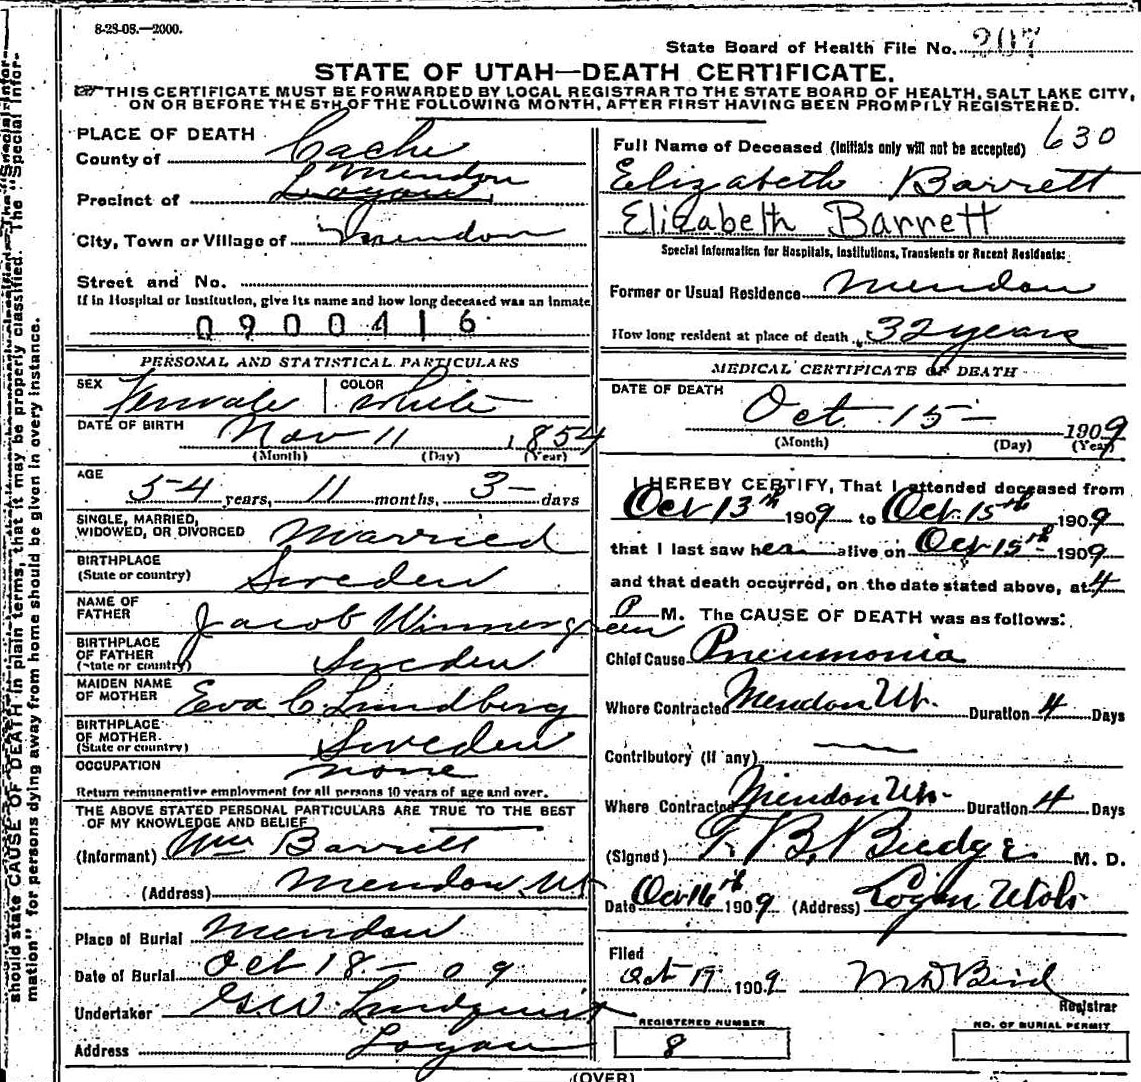 8-28-08.—2000.
State Board of Health File No. 207
STATE OF UTAH—DEATH CERTIFICATE.
THIS CERTIFICATE MUST BE FORWARDED BY LOCAL REGISTRAR TO THE STATE BOARD OF HEALTH, SALT LAKE CITY,
ON OR BEFORE THE 5TH OF THE FOLLOWING MONTH, AFTER FIRST HAVING BEEN PROMPILY REGISTERED.
PLACE OF DEATH
County of Cache
Mendon
Precinct of Logan
City, Town or Village of Mendon
Street and No.
If in Hospital or Institution, give its name and how long deceased was an inmate
0900416
PERSONAL AND STATISTICAL PARTICULARS
SEX Female COLOR White
DATE OF BIRTH Nov 11 1854
(Month) (Day) (Year)
AGE 54 years, 11 months, 3 days
SINGLE, MARRIED,
WIDOWED, OR DIVORCED Married
BIRTHPLACE
(State or country) Sweden
NAME OF
FATHER Jacob Winnergreen
BIRTHPLACE
OF FATHER
(State or country) Sweden
MAIDEN NAME
OF MOTHER Eva C Lundberg
BIRTHPLACE
OF MOTHER.
(State or country) Sweden
OCCUPATION none
Return remunerative employment for all persons 10 years of age and over.
THE ABOVE STATED PERSONAL PARTICULARS ARE TRUE TO THE BEST
OF MY KNOWLEDGE AND BELIEF
(Informant) Wm Barrett
(Address) Mendon Ut
Place of Burial Mendon
Date of Burial Oct 18 - 09
Undertaker G.W. Lundquist
Address Logan
630
Full Name of Deceased (Initials only will not be accepted)
Elizabeth Barrett
Elizabeth Barrett
Special Information for Hospitals, Institutions, Transients or Recent Residents:
Former or Usual Residence Mendon
How long resident at place of death 32 years
MEDICAL CERTIFICATE OF DEATH
DATE OF DEATH
Oct 15 - 1909
(Month) (Day) (Year)
I HEREBY CERTIFY, That I attended deceased from
Oct 13th 1909 to Oct 15th 1909
that I last saw her alive on Oct 15th 1909
and that death occurred, on the date stated above, at 4
P M. The CAUSE OF DEATH was as follows:
Chief Cause Pneumonia
Where Contracted Mendon Ut. Duration 4 Days
Contributory (if any)
Where Contracted Mendon Ut. Duration 4 Days
(Signed) T. B. Budge M. D.
Date Oct 16th 1909 (Address) Logan Utah
Filed
Oct 19 1909 M D Bird
Registrar
REGISTERED NUMBER
8
NO. OF BURIAL PERMIT
(OVER)
should state CAUSE OF DEATH in plain terms, that it may be properly classified. The "Special Infor-
mation" for persons dying away from home should be given in every instance.